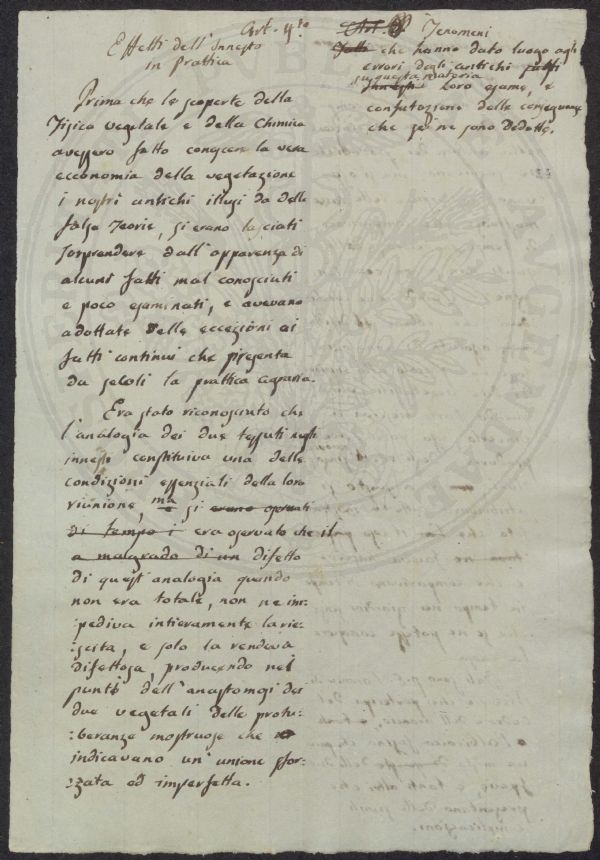 Art. 4.to
Effetti dell'Innesto
in prattica
Art. Fenomeni
Fatti che hanno dato luogo agli
errori degli antichi sull'
su questa materia
Innesti loro esame, e
confutazione delle conseguenze
che se ne sono dedotte.
Prima che le scoperte della
Fisica vegetale e della Chimica
avessero fatto conoscere la vera
economia della vegetazione
i nostri antichi illusi da delle
false Teorie, si erano lasciati
sorprendere dall'apparenza di
alcuni fatti mal conosciuti
e poco esaminati, e avevano
adottate delle eccezioni ai
fatti continui che presenta
da secoli la prattica agraria.
Era stato riconosciuto che
l'analogia dei due tessuti negli
innesti constituiva una delle
condizioni essenziali della loro
riunione, ma si erano osservati
di tempo i era osservato che il
a malgrado di un difetto
di quest'analogia quando
non era totale, non ne im-
:pediva intieramente la rie-
:scita, e solo la rendeva
difettosa, producendo nel
punto dell'anastomosi dei
due vegetali delle protu-
:beranze mostruose che
indicavano un'unione sfor-
:zata ed imperfetta.